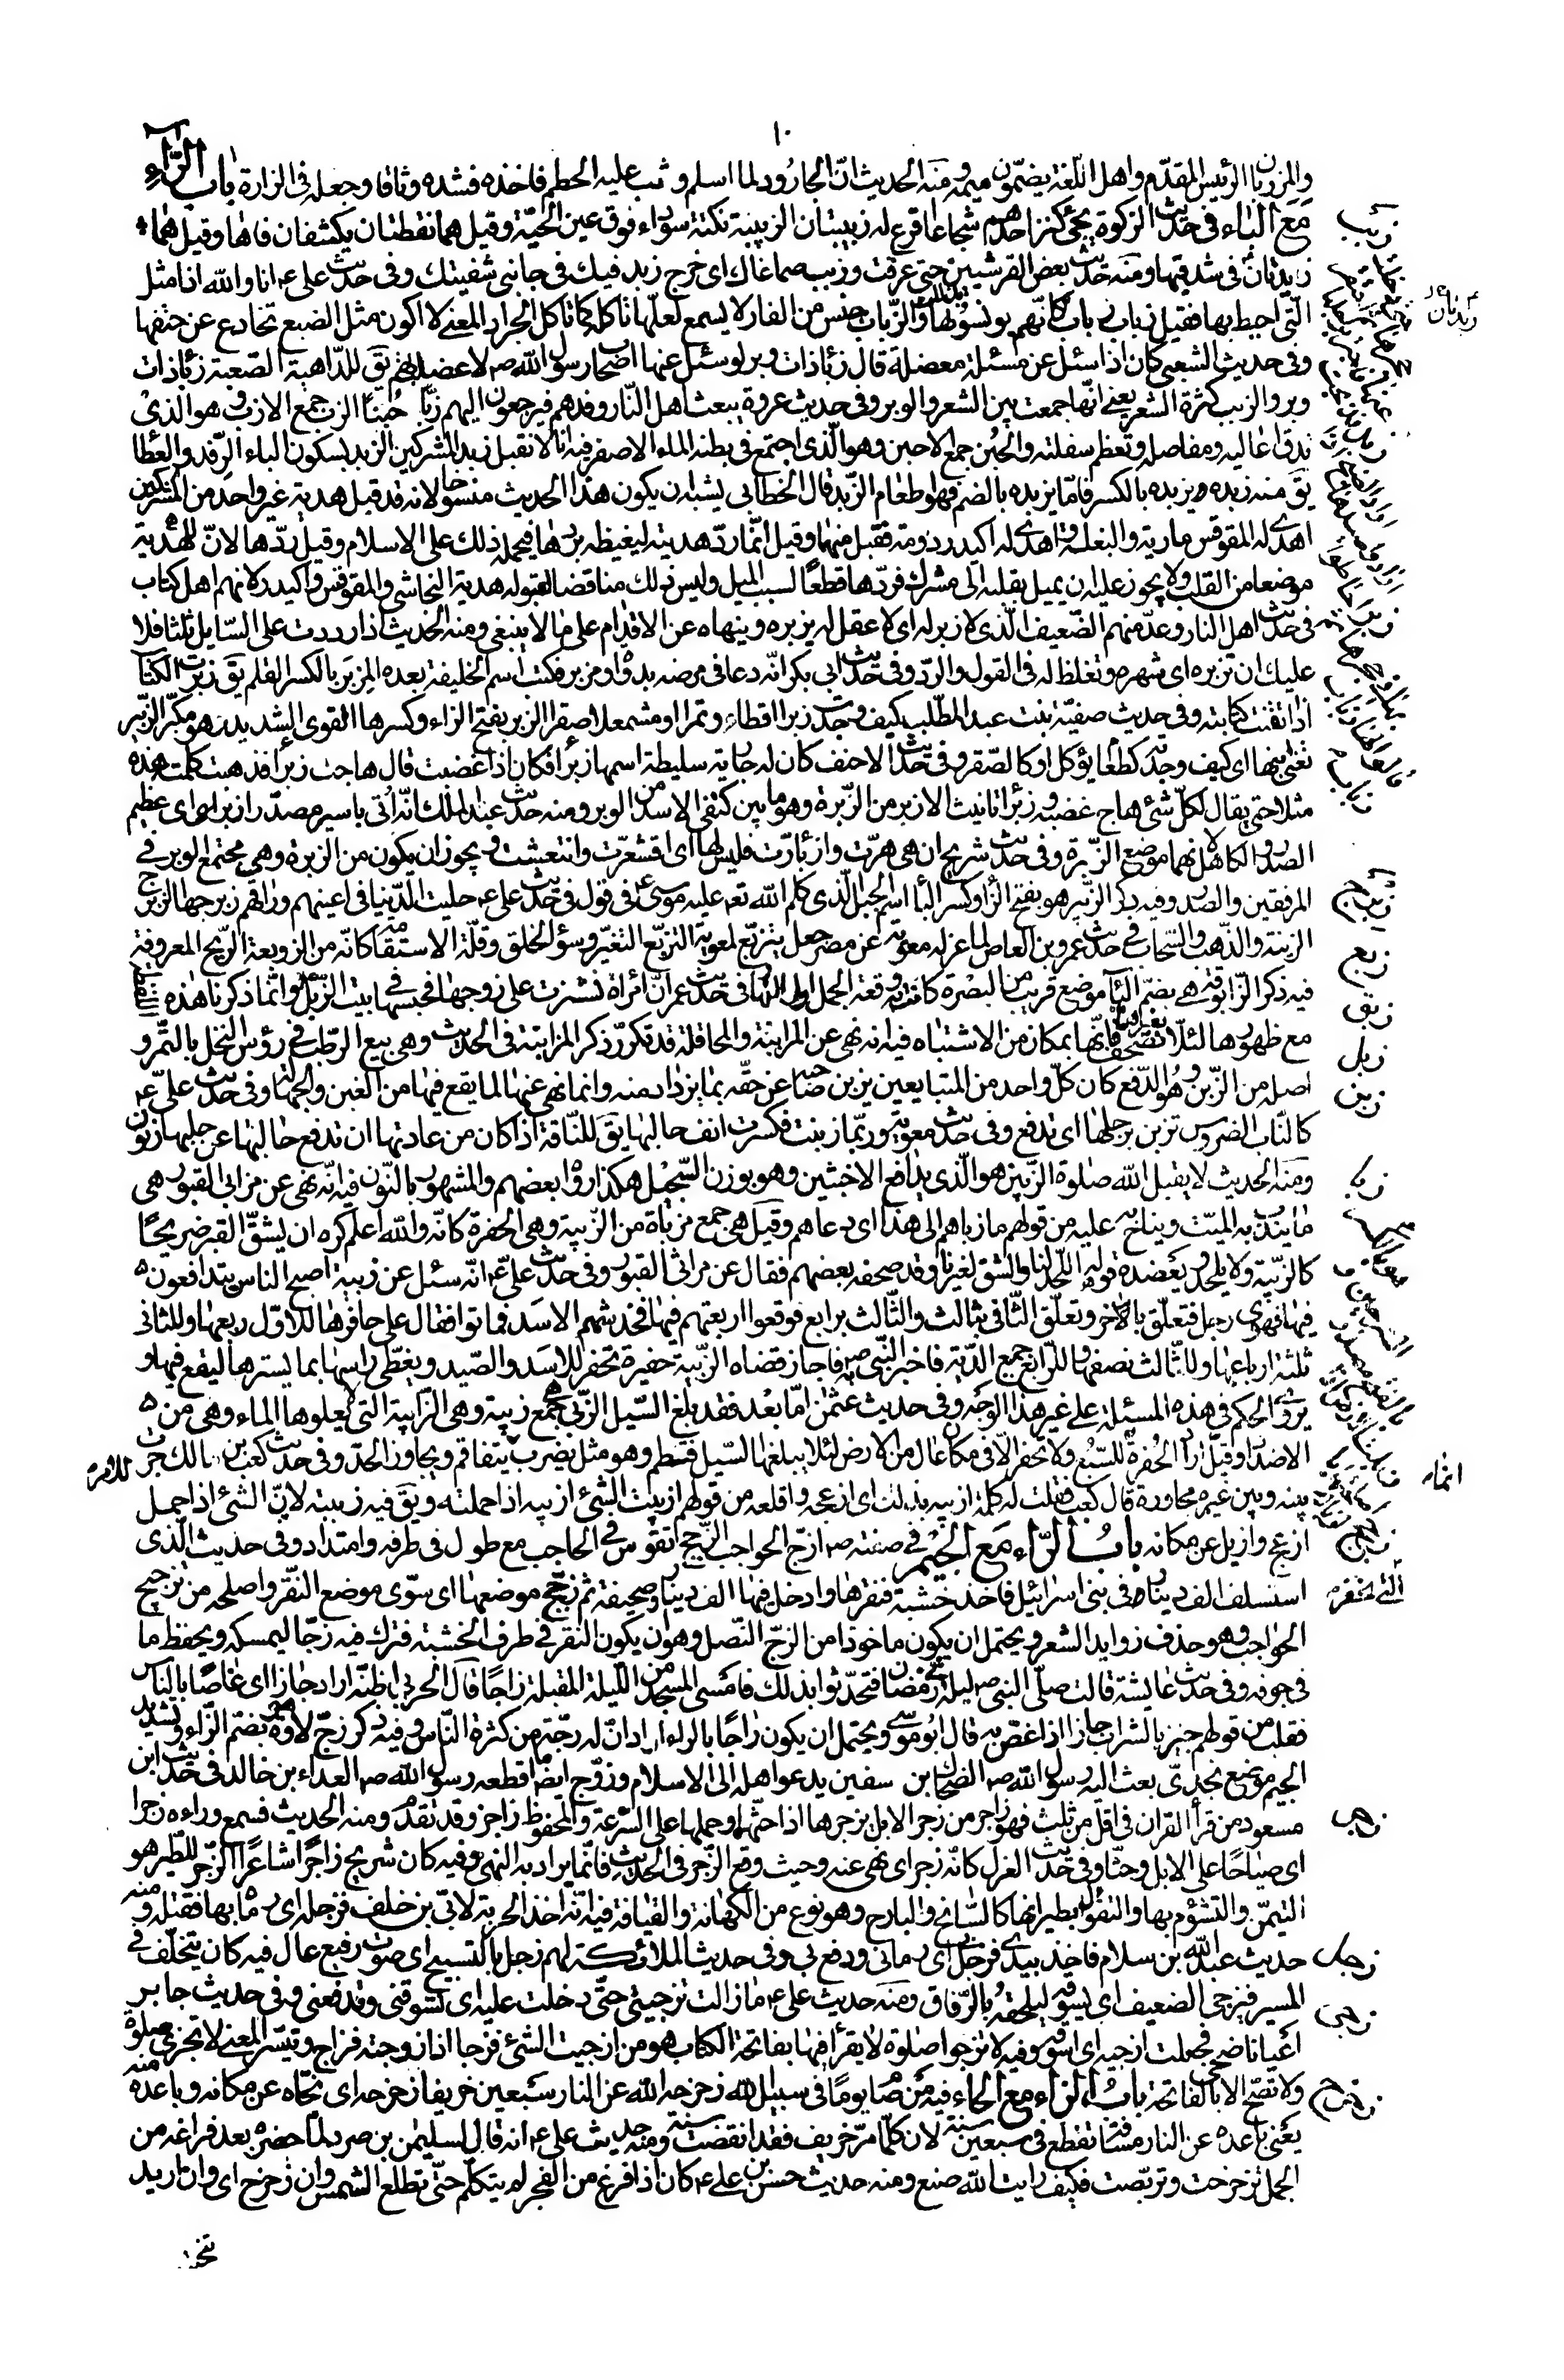 ١٠
والمرزبان الرئيس المقدّم واهل اللّغة يضمّون ميمه ومنه الحديث انّ الجارود لما اسلم وثب عليه الحطم فاخذه فشده وثاقا وجعله فى الزارة باب الزّاء
مع الباء فى حديث الزكوة يجئ كنز احدهم شجاعا اقرع له زبيبتان الزبيبة نكتة سوداء فوق عين الحيّة وقيل هما نقطتان يكتنفان فاها وقيل هما
زبدتان فى شدقيها ومنه حديث بعض القرشيين حتى عرقت وزبب صماغاك اى خرج زبد فيك فى جانبى شفيتك وفى حديث على ع انا والله اذا مثل
الّتى احيط بها فقيل زباب زباب كانّهم يونسونها والزّباب جنس من الفار لا يسمع لعلّها تاكله كما تاكل الجراد المعنى لا اكون مثل الضبع تخادع عن حتفها
وفى حديث الشعبى كان اذا سئل عن مسئلة معضلة قال زبّاء ذات وبر لو سئل عنها اصحاب رسول الله ص لاعضلت بهم يق للداهية الصّعبة زبّاء ذات
وبر والزبب كثرة الشعر يعنى انّها جمعت بين الشعر والوبر وفى حديث عروة يبعث اهل النّار وفدهم فيرجعون اليهم زبّا حُبنًا الزب جمع الازب وهو الّذى
تدق اعاليه ومفاصله وتعظم سفلته والحُبن جمع الاحبن وهو الّذى اجتمع فى بطنه الماء الاصفر فيه انّا لا نقبل زبد المشركين الزبد بسكون الباء الرّفد والعطا
يق منه زبده يزبده بالكسر فامّا يزبده بالضم فهو اطعام الزّبد قال الخطابى يشبه ان يكون هذا الحديث منسوخا لانه قد قبل هدية غير واحد من المشركين
اهدى له المقوقس مارية والبغلة واهدى له اكيدر دومة فقبل منهما وقيل انّما ردّ هديته ليغيظه بردّها فيحمله ذلك على الاسلام وقيل ردّها لانّ للهدية
موضعا من القلب ولا يجوز عليه ان يميل بقلبه الى مشرك فردّها قطعًا لسبب الميل وليس ذلك مناقضا لقبوله هدية النجاشى والمقوقس واكيدر لانهم اهل كتاب
فى حديث اهل النار وعدّ منهم الضّعيف الّذى لا زبر له اى لا عقل له يزبره وينهاه عن الاقدام على ما لا ينبغى ومنه الحديث اذا رددت على السّايل ثلثا فلا
عليك ان تزبره اى تنهره وتغلظ له فى القول والرّد وفى حديث ابى بكر انّه دعا فى مرضه بدواة ومزبر فكتب اسم الخليفة بعده المِزبَر بالكسر القلم يق زبرت الكتاب
اذا تقنت كتابته وفى حديث صفيّة بنت عبد المطّلب كيف وجدت زبرا اقطا وتمرا او مشمعلا صقرا الزبر بفتح الزاء وكسرها القوى الشديد وهو مكبّر الزّبير
تعنى ابنها اى كيف وجدته كطعام يؤكل او كالصّقر وفى حديث الاحنف كان له جارية سليطة اسمها زبراء فكان اذا غضبت قال هاجت زبراء فذهبت كلمته هذه
مثلا حتى يقال لكلّ شئ هاج غضبه وزبراء تانيث الازبر من الزّبرة وهو ما بين كتفى الاسد من الوبر ومنه حديث عبد الملك انّه اُتى باسير مصدّر ازبر اى عظيم
الصدر والكاهل لانهما موضع الزّبرة وفى حديث شريح ان هى هرّت وازبارّت فليس لها اى اقشعرّت وانتفشت ويجوز ان يكون من الزبرة وهى مجتمع الوبر فى
المرفقين والصّدر وفيه ذكر الزّبير هو بفتح الزّاء وكسر الباء اسم الجبل الّذى كلّم الله تع عليه موسى ع فى قول فى حديث على ع حليت الدّنيا فى اعينهم وراقهم زبرجها الزبرج
الزينة والذّهب والسّحاب فى حديث عمرو بن العاص لما عزله معوية عن مصر جعل يتزبّع لمعوية التزبّع التغيّر وسؤ الخلق وقلّة الاستقامة كانّه من الزوبعة الرّيح المعروفة
فيه ذكر الزّابوقة هى بضمّ الباء موضع قريب من البصرة كانت به وقعة الجمل اول النّهار فى حديث عمر انّ امرأة نشزت على زوجها فحبسها فى بيت الزّبل وانّما ذكرنا هذه
مع ظهورها لئلّا تصحّف فانّها بمكان من الاشتباه فيه انه نهى عن المزابنة والمحاقلة قد تكرّر ذكر المزابنة فى الحديث وهى بيع الرّطب فى رؤس النخل بالتّمر و
اصله من الزّبن وهُو الدّفع كان كلّ واحد من المتبايعين يزبن صاحبه عن حقّه بما يزداد منه وانما نهى عنها لما يقع فيها من الغبن والجهالة وفى حديث علىّ ع
كالنّاب الضروس تزبن برجلها اى تدفع وفى حديث معوية وربّما زبنت فكسرت انف حالبها يق للنّاقة اذا كان من عادتها ان تدفع حالبها عن حلبها زبون
ومنه الحديث لا يقبل الله صلوة الزّبّين هو الّذى يدافع الاخبثين وهو بوزن السّجّيل هكذا رواه بعضهم والمشهور بالنّون فيه انّه نهى عن مزابى القبور هى
ما يندب به الميّت ويناح عليه من قولهم ما زباهم الى هذا اى دعاهم وقيل هى جمع مزباة من الزّبية وهى الحفرة كانّه والله اعلم كره ان يشقّ القبر ضريحًا
كالزّبية ولا يلحد يعضده قوله اللّحد لنا والشق لغيرنا وقد صحفه بعضهم فقال عن مراثى القبور وفى حديث علىّ ع انّه سئل عن زبية اصبح الناس يتدافعون
فيها فهوى رجل فتعلّق بالاخر وتعلّق الثّانى بثالث والثّالث برابع فوقعوا اربعتهم فيها فخدشهم الاسد فماتوا فقال على حافرها الدّية للاوّل ربعها وللثانى
ثلثة ارباعها وللثّالث نصفها وللرّابع جميع الدّية فاخبر النّبى ص فاجاز قضاه الزّبية حفيرة تحفر للاسد والصّيد ويغطّى راسها بما يسترها ليقع فيها و
يروى الحكم فى هذه المسئلة على غير هذا الوجه وفى حديث عثمن امّا بعد فقد بلغ السّيل الزّبى جمع زبية وهى الرّابية التى لا يعلوها الماء وهى من
الاضداد وقيل اراد الحُفرة للسّبع ولا تحفر الّا فى مكان عال من الارض لئلا يبلغها السّيل فتنطم وهو مثل يضرب يتفاقم ويجاوز الحدّ وفى حديث كعب بن مالك جرت
بينه وبين غيره محاورة قال كعب فقلت له كلمة ازبيه بذلك اى ازعجه واقلعه من قولهم ازبيت الشئ ازبيه اذا حملته ويق فيه زبيته لانّ الشئ اذا حمل
ازعج وازيل عن مكانه باب الزّاء مع الجيم فى صفته ص ازج الحواجب الزّجج تقوّس فى الحاجب مع طول فى طرفه وامتداد وفى حديث الّذى
استسلف الف دينار فى بنى اسرائيل فاخذ خشبة فنقرها وادخل فيها الف دينار وصحيفة ثم زجّج موضعها اى سوّى موضع النّقر واصلحه من تزجيج
الحواجب وهو حذف زوايد الشعر ويحتمل ان يكون ماخوذا من الزجّ النّصل وهو ان يكون النقر فى طرف الخشبة فترك فيه زجّا ليمسكه ويحفظ ما
فى جوفه وفى حديث عايشة قالت صلّى النبى ص ليلة فى رمضان فتحدّثوا بذلك فامسى المسجد من اللّيلة المقبلة زاجًا قال الحربى اظنّه اراد جازا اى غاصّا بالناس
فقلب من قولهم جئز بالشراب جازا اذا غصّ به قال ابو موسى ويحتمل ان يكون راجًا بالراء اراد انّ له رجّة من كثرة النّاس وفيه ذكر زجّ لاوة هو بضمّ الزّاء وتشديد
الجيم موضع نجدىّ بعث اليه رسول الله ص الضحاك بن سفين يدعو اهله الى الاسلام وزجّ ايضا اقطعه رسول الله ص العداء بن خالد فى حديث ابن
مسعود من قرأ القران فى اقل من ثلث فهو زاجر من زجر الابل يزجرها اذا حثّها وحملها على السّرعة والمحفوظ راجز وقد تقدّم ومنه الحديث فسمع وراءه زجرا
اى صياحًا على الابل وحثّا وفى حديث العزل كانّه زجر اى نهى عنه وحيث وقع الزّجر فى الحديث فانّما يراد به النهى وفيه كان شريح زاجرًا شاعرًا الزّجر للطّير هو
التيمّن والتشؤم بها والتفوّل بطيرانها كالسّانح والبارح وهو نوع من الكهانة والعيافة فيه انّه اخذ الحربة لابىّ بن خلف فزجله اى رماه بها فقتله ومنه
حديث عبد الله بن سلام فاخذ بيدى فزجل بى اى رمانى ودفع بى وفى حديث الملائكة لهم زجل بالتسبيح اى صوت رفيع عال فيه كان يتخلّف فى
المسير فيزجى الضعيف اى يسوقه ليلحقه بالرّفاق ومنه حديث على ع ما زالت تزجينى حتّى دخلت عليه اى تسوقنى وتدفعنى وفى حديث جابر
اعيا ناضحى فجعلت ازجيه اى اسوقه وفيه لا تزجو صلوة لا يقرأ فيها بفاتحة الكتاب هو من ازجيت الشئ فزجا اذا روجته فراج وتيسّر المعنى لا تجزى صلوة
ولا تصحّ الا بالفاتحة باب الزاء مع الحاء فيه من صام يومًا فى سبيل الله زحزحه الله عن النار سبعين خريفا زحزحه اى نحّاه عن مكانه وباعده منه
يعنى باعده عن النار مسافة تقطع فى سبعين سنة لان كلّما مرّ خريف فقد انقضت سنة ومنه حديث على ع انه قال لسليمن بن صرد لمّا حضره بعد فراغه من
الجمل تزحزحت وتربّصت فكيف رايت الله صنع ومنه حديث حسن بن على ع كان اذا فرغ من الفجر لم يتكلّم حتّى تطلع الشمس وان زحزح اى وان اريد
زبب
زبرج
زبع
زبق
زبل
زبن
زبا
زجج
زجر
زجل
زجى
زحزح